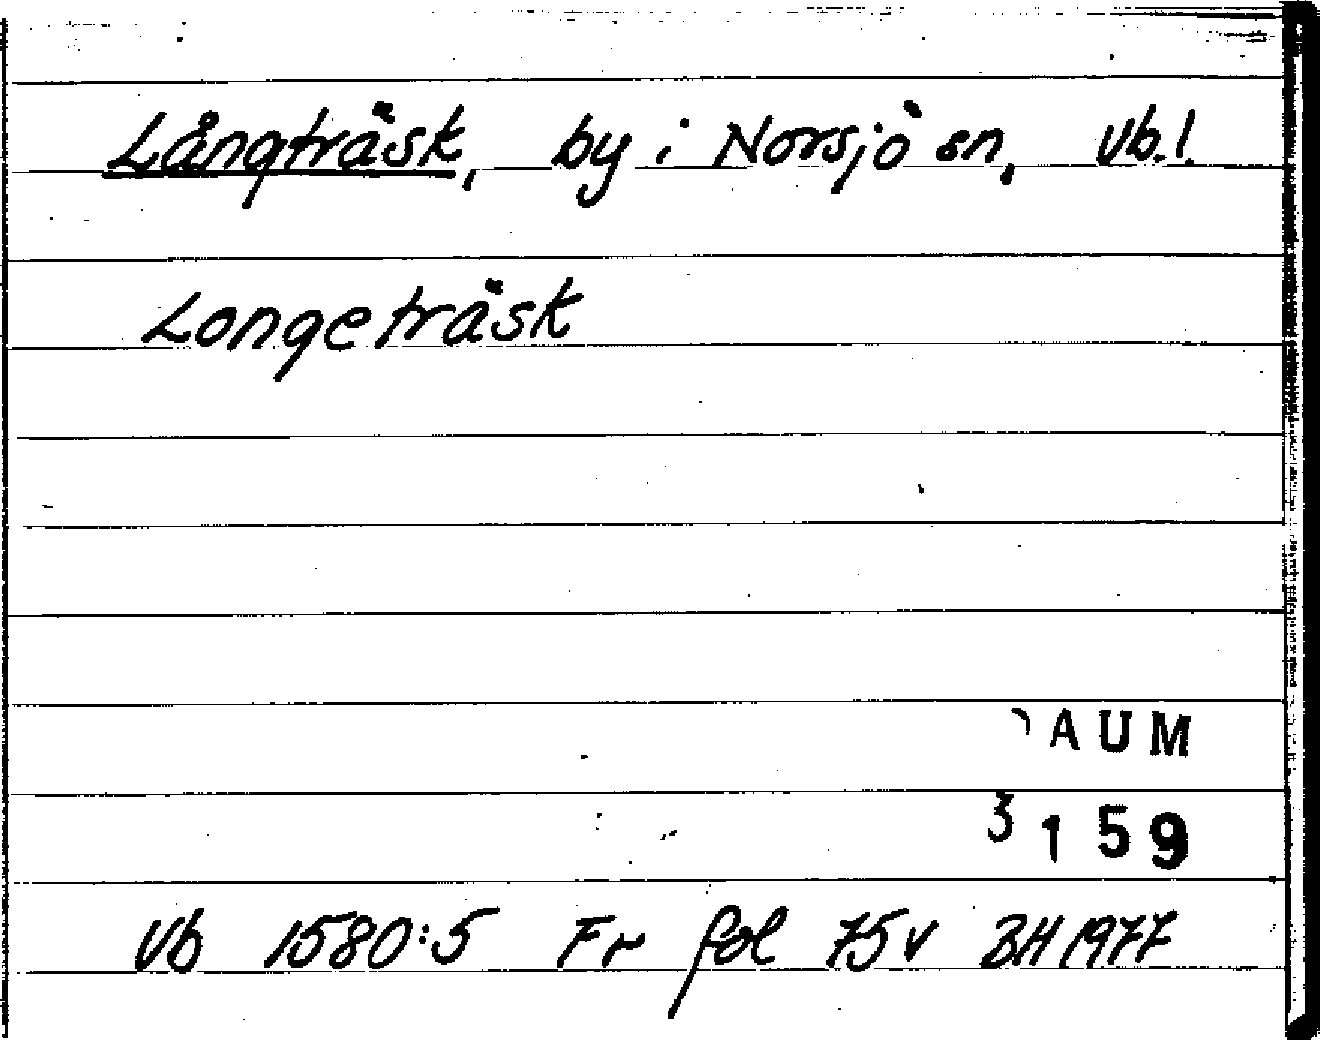 Långträsk, by i Norsjö sn, Vb.l.
Longeträsk
DAUM
3159
Vb 1580:5 Fr fol 75v BH 1977